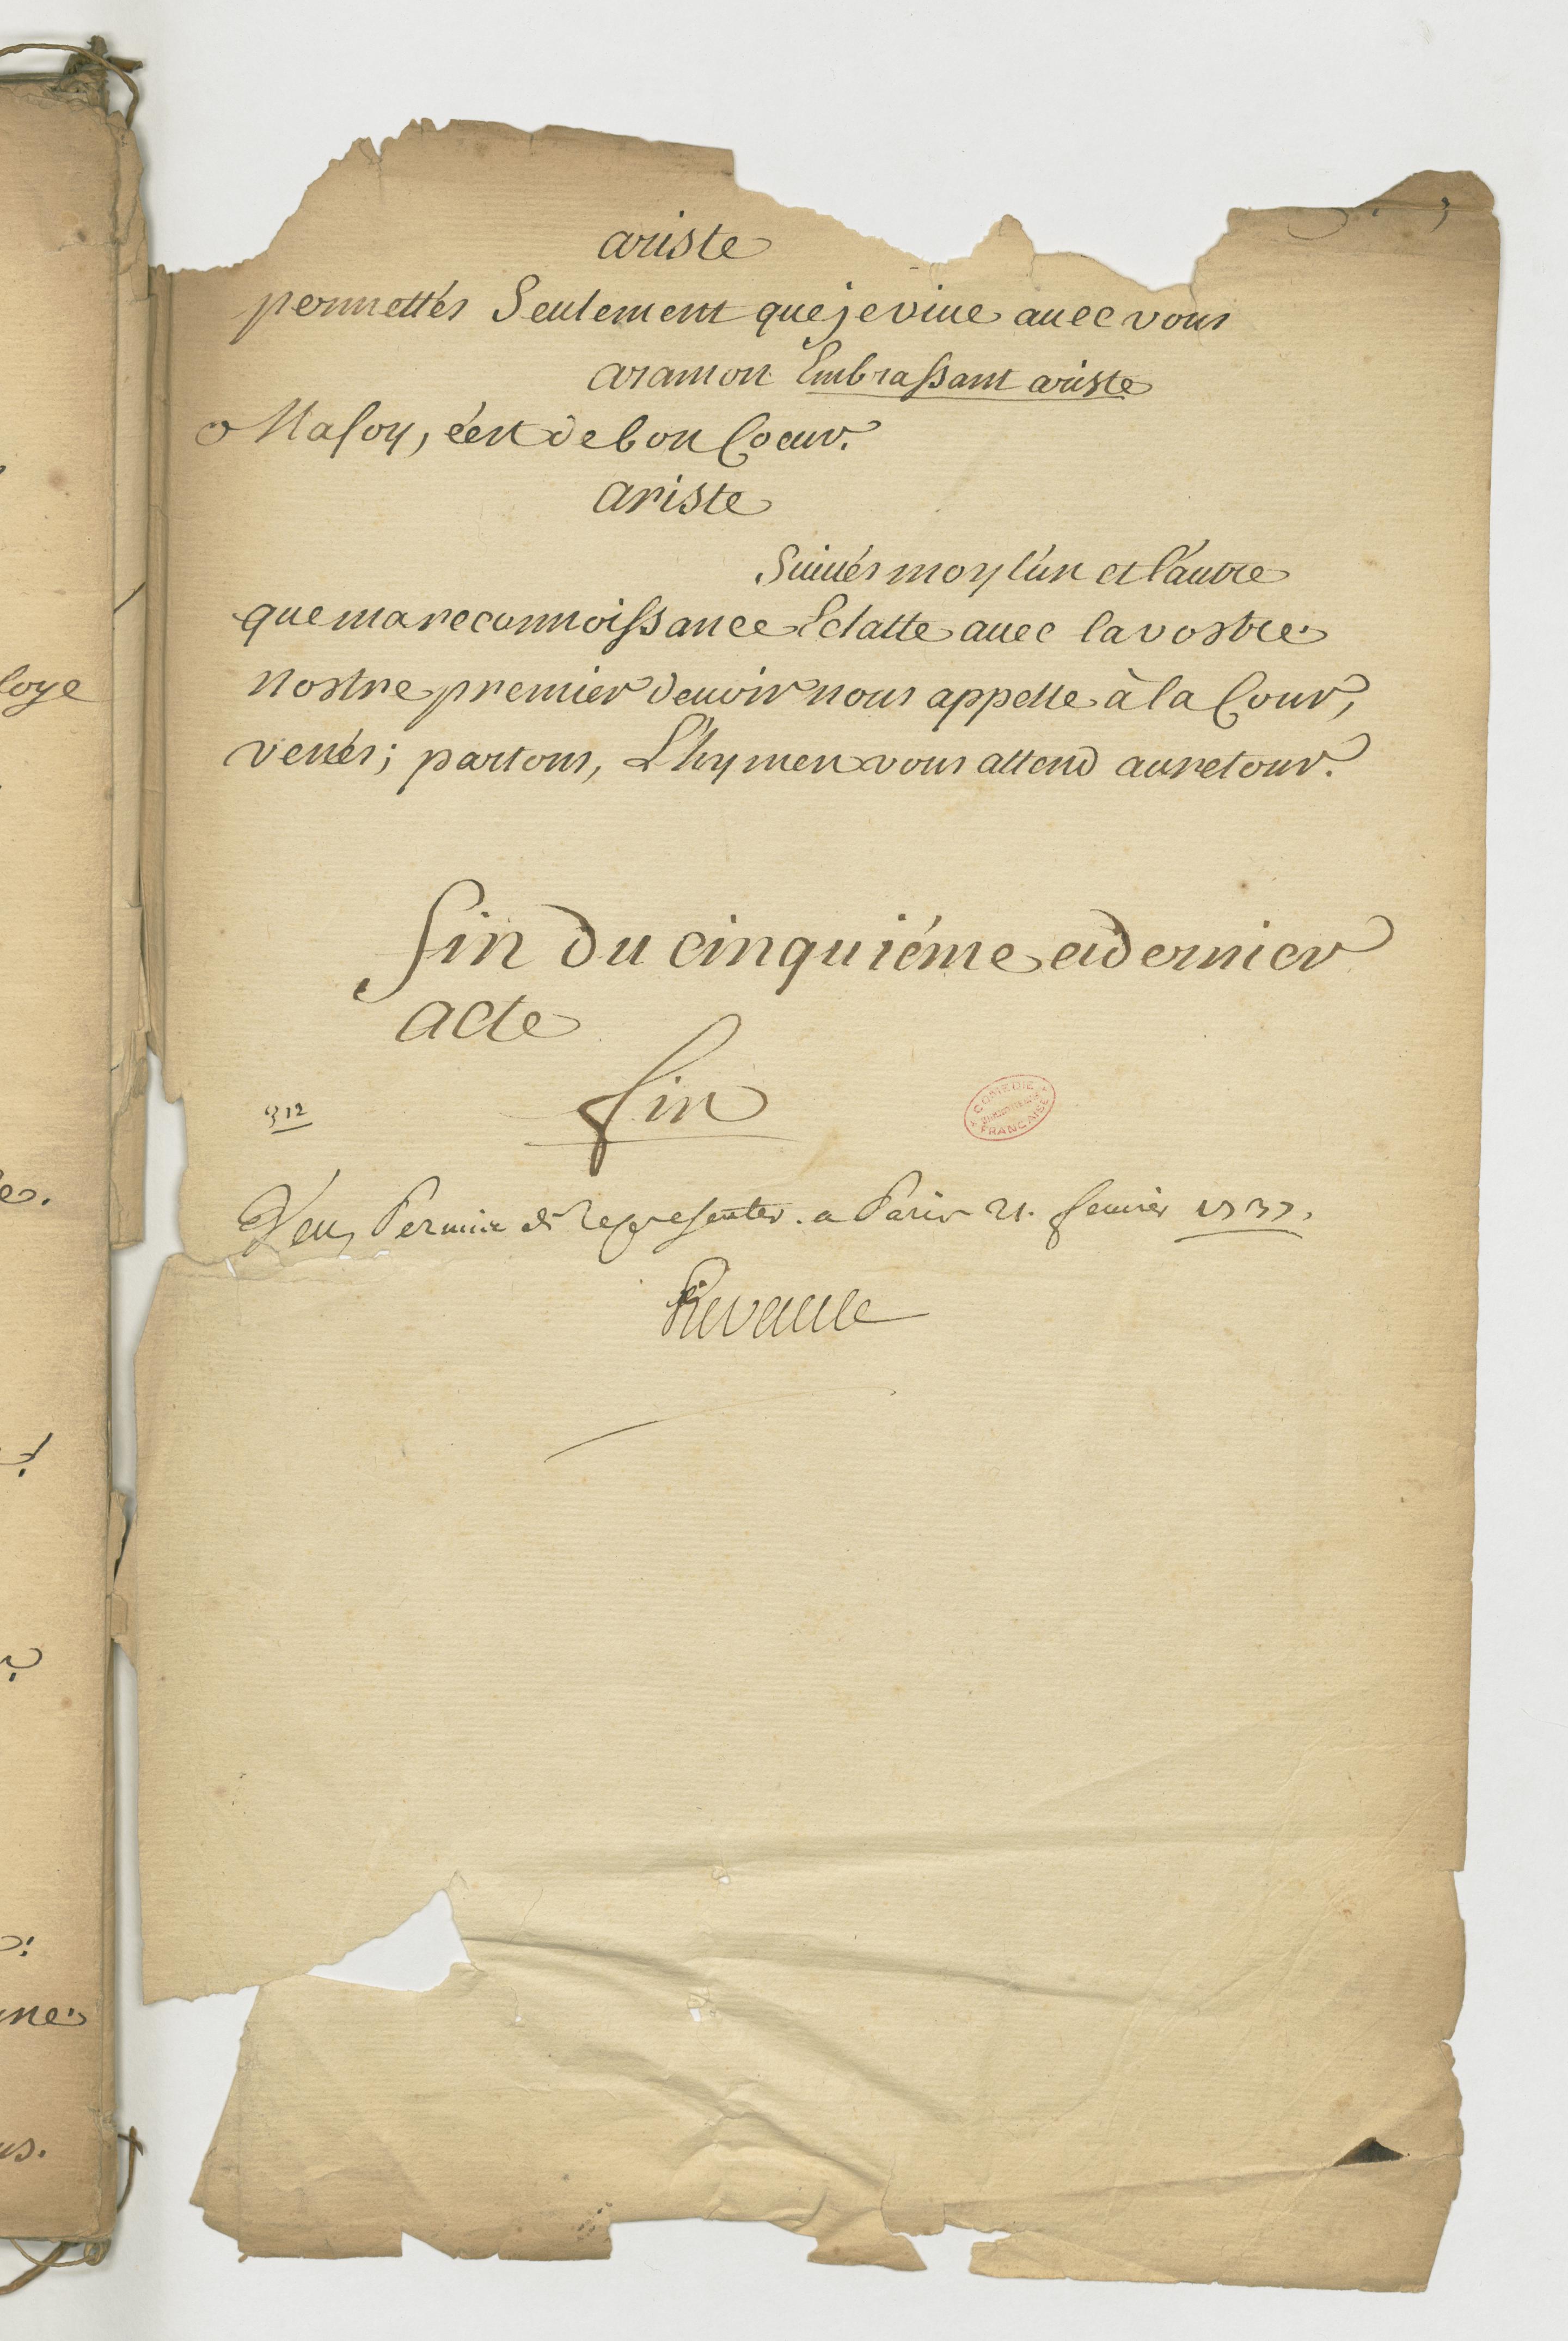 ariste
permettés Seulement que je viue auec vous
aramon Embrassant ariste
Ma foy, c'est de bon Coeur.
ariste
Suiués moy l'un et l'autre
que ma reconnoissance Eclatte auec la vostre
nostre premier deuoir nous appelle à la Cour,
venés; partons, L'hymen vous attend au retour.
fin du cinquiéme et dernier
acte
fin
312
COMEDIE FRANÇAISE
Veu, Permis de representer. a Paris 21. feurier 1737.
loye